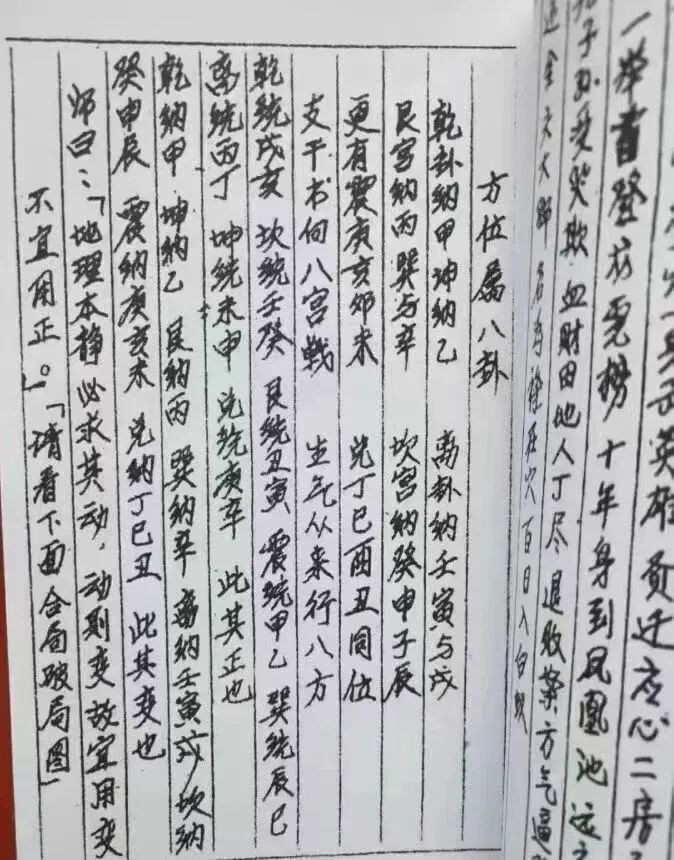 英雄
一举首登龙虎榜 十年身到凤凰池
子孙受哭欺 血财田地人丁尽退败 方气逼
百日入白蚁
方位属八卦
乾卦纳甲坤纳乙 离卦纳壬寅与戌
艮宫纳丙巽与辛 坎宫纳癸申子辰
更有震庚亥卯未 兑丁巳酉丑同位
支干书向八宫 生气从来行八方
乾统戌亥 坎统壬癸 艮统丑寅 震统甲乙 巽统辰巳
离统丙丁 坤统未申 兑统庚辛 此其正也
乾纳甲 坤纳乙 艮纳丙 巽纳辛 离纳壬寅戌 坎纳
癸申辰 震纳庚亥未 兑纳丁巳丑 此其变也
师曰：「地理本静必求其动，动则变故宜用变
不宜用正。」「请看下面合局破局图」